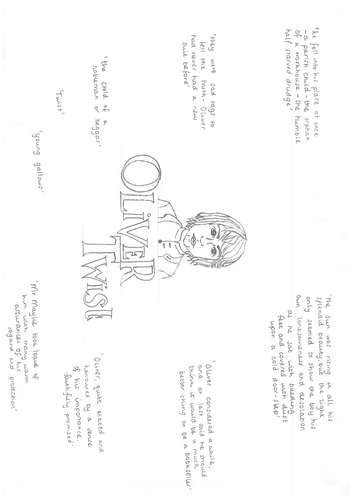 'he fell into his place at once
– a parish child – the orphan
of a workhouse – the humble
half starved drudge'
'they were sad rags to
tell the truth – Oliver
had never had a new
suit before'
'the child of a
nobleman or beggar'
'Twist'
'young gallows'
OLIVER
TWIST
'the sun was rising in all his
splendid beauty but the light
only seemed to show the boy his
own lonesomeness and desolation
as he sat with bleeding
feet and covered with dust
upon a cold door-step'
'Oliver considered a while,
and at last said he should
think it would be a much
better thing to be a bookseller'
'Oliver, quite elated and
honoured by a sense
of his importance,
faithfully promised'
'Mr Maylie took leave of
him with many warm
assurances of his
regard and protection'